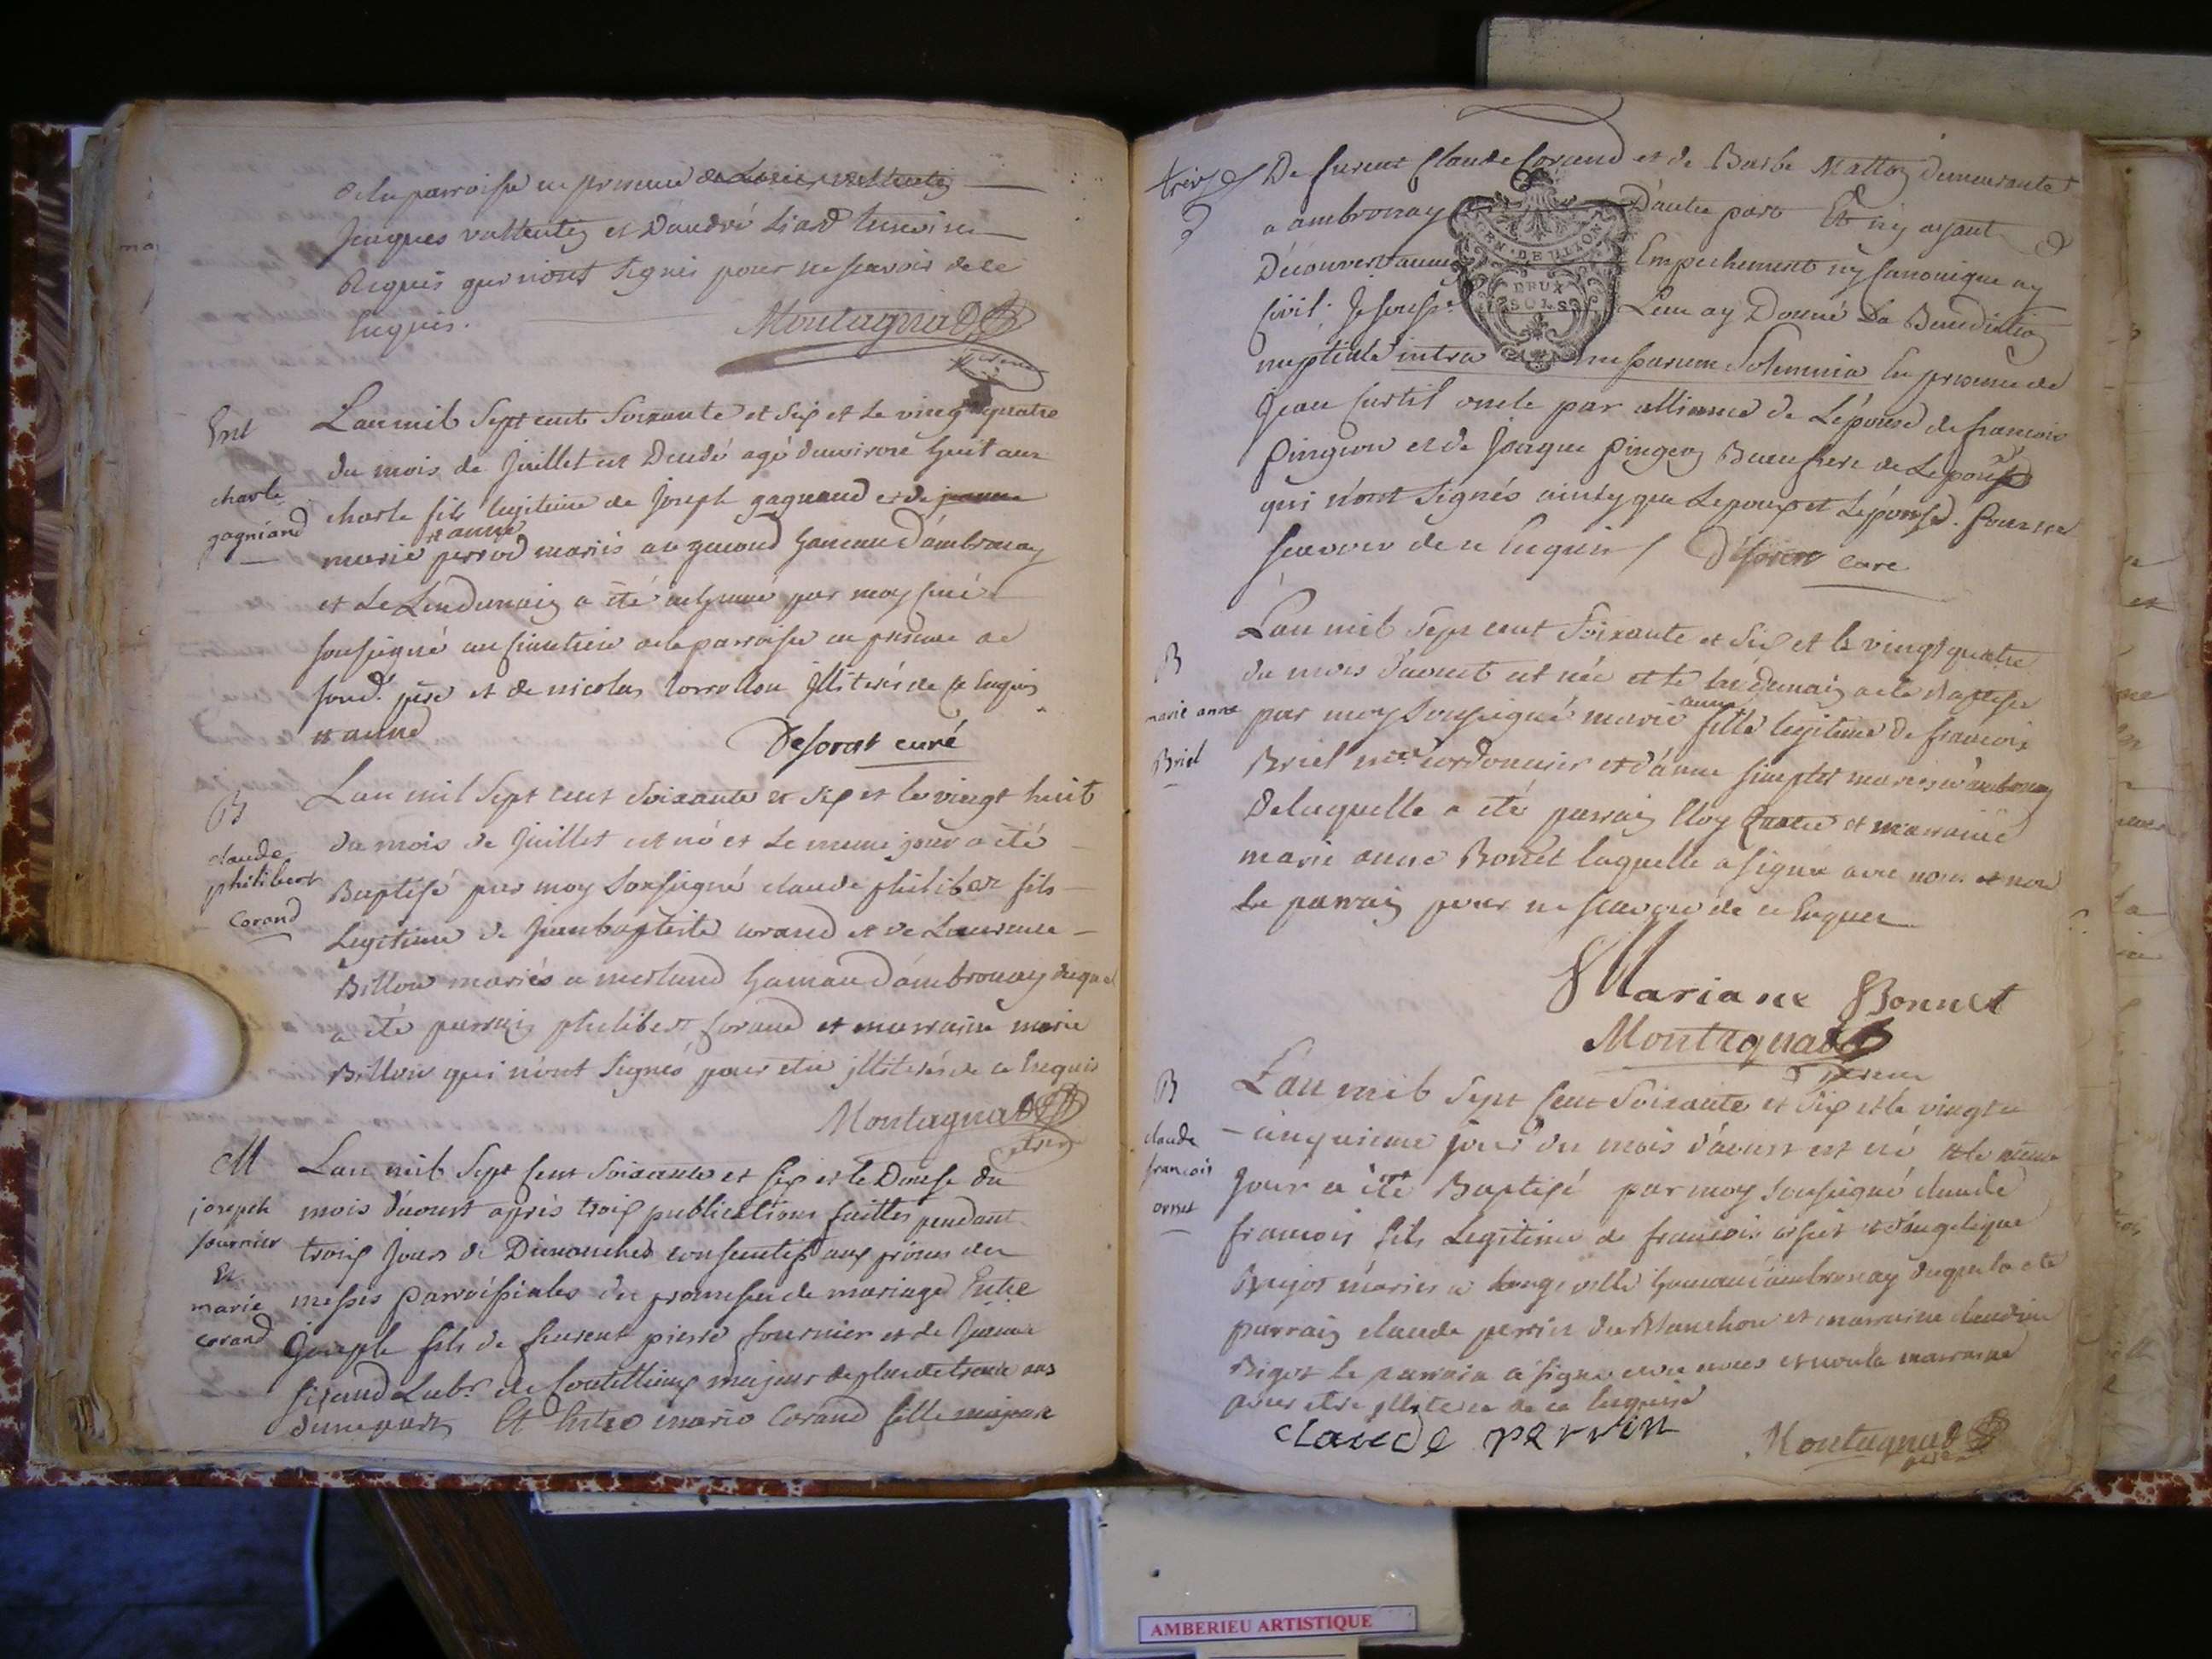 de la parroisse en presence de
Jacques vallentin et d'andré Liard temoins
Requis qui n'ont signés pour ne scavoir de ce
Enquis.
Montagnad
Ent
charle
gagniand
L'an mil sept cent soixante et six et le vingt quatre
du mois de Juillet est decedé agé d'environ huit ans
charle fils legitime de Joseph gagnand et de jeanne
marie perrod mariés au genoud hameau d'ambronay
et Le Lendemain a été inhumé par moy curé
soussigné au cimetiere de la parroisse en presence de
son d. pere et de nicolas illiterés de ce Enquis
et anne
Desorat curé
B
claude
philibert
Corand
L'an mil sept cent soixante et six et le vingt huit
du mois de Juillet est né et le meme jour a été
Baptisé par moy soussigné claude philiber fils
Legitime de Jean baptiste corand et de Laurence
Billon mariés a merland hamau d'ambronay duquel
a été parrain philibert corand et marraine marie
Billon qui n'ont signés pour etre illiterés de ce Enquis
Montagnad
M
joseph
fournier
Et
marie
corand
L'an mil sept cent soixante et six et le Douse du
mois d'aoust après trois publications faittes pendant
trois jours de Dimanches consecutifs aux prones des
messes parroissiales des promesses de mariage Entre
Joseph fils de feurent pierre fournier et de Jeanne
Lab.r de majeur de plus de trente ans
d'une part Et Entre marie Corand fille majeure
De feurent Claude Corand et de Barbe Matton demeurante
a ambronay D'autre part Et n'y ayant
Decouvert aucung Empechement ny canonique ny
Civil. Je souss.é Leur ay Donné La Benediction
nuptiale intra missarum solemnia En presence de
Jean curtil oncle par alliance de L'épouse de francois
pingeon et de Jacque pingeon Beau frere de Lepouse
qui n'ont signés ainsy que Lepoux et Lépouse. pour ne
scavoir de ce Enquis / Desorat curé
GEN. DE DIJON
DEUX
SOLS
B
marie anne
Briel
L'an mil sept cent soixante et six et le vingt quatre
du mois d'aoust est née et le lendemain a été Baptisée
anne
par moy soussigné marie fille legitime de francois
Briel m.e cordonnier et d'anne simplet mariés d'ambronay
De laquelle a été parrain Eloy et marraine
marie anne Bonnet laquelle a signé avec nous et non
Le parrain pour ne scavoir de ce Enquer
Mariane Bonnet
Montagnad
B
claude
francois
orset
L'an mil sept cent soixante et six et le vingt
cinquieme jour du mois d'aoust est né et le meme
Jour a été Baptisé par moy soussigné claude
francois fils Legitime de francois orset et d'angelique
mariés a longeville hameau d'ambronay duquel a été
parrain claude perrin du Blanchon et marraine claudine
Bigot le parrain a signé avec nous et non la marraine
pour etre illiterée de ce Enquise
claude perrin
Montagnad
AMBERIEU ARTISTIQUE